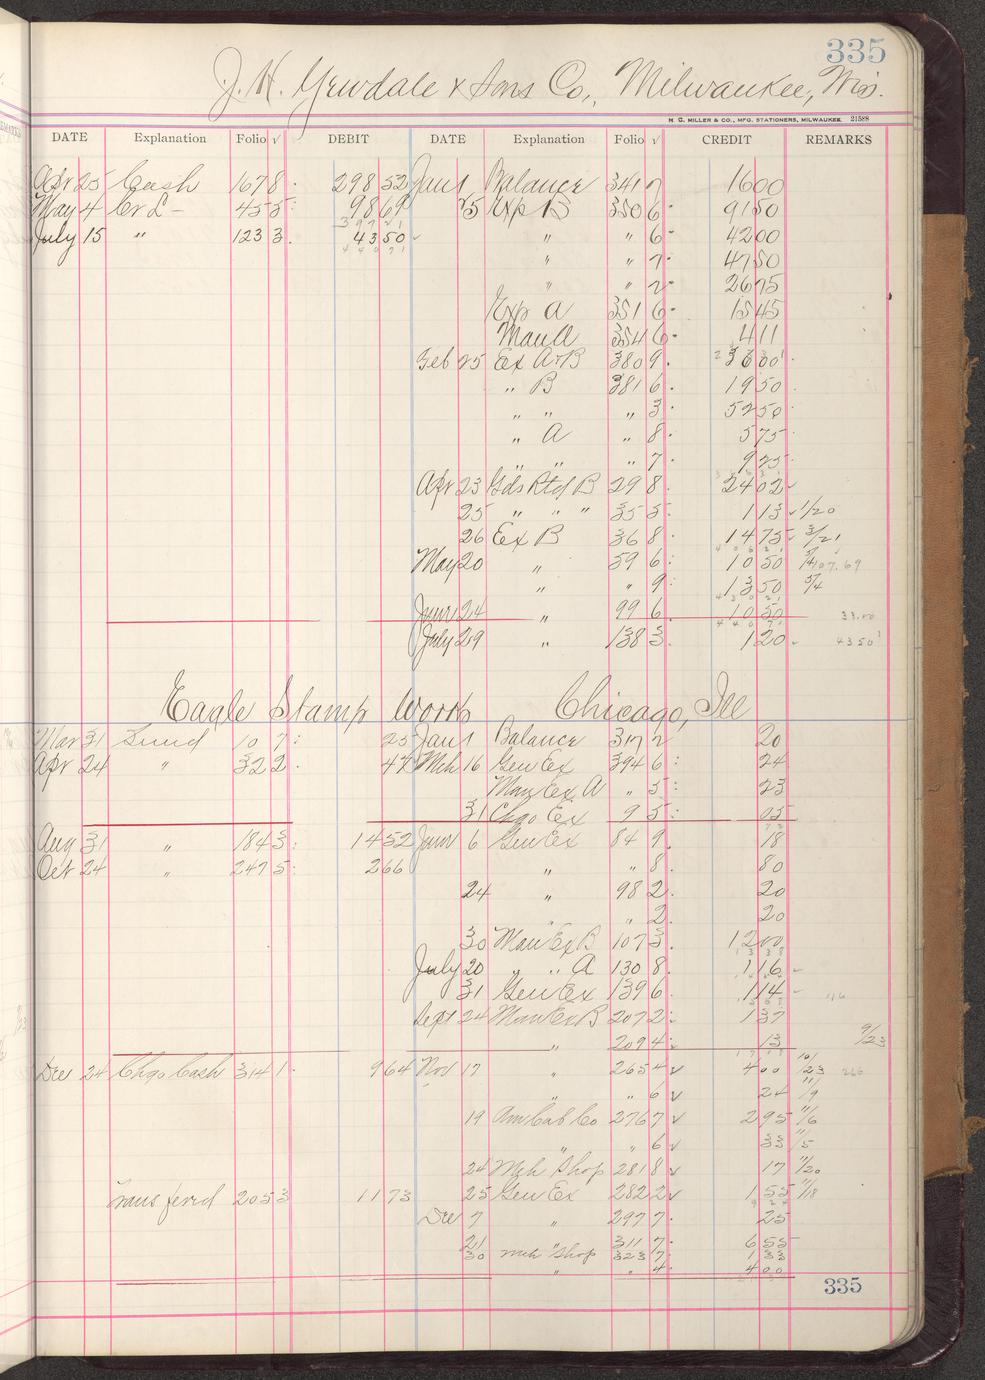 335
J. H. Yewdale & Sons Co., Milwaukee, Wis.
H. G. MILLER & CO., MFG. STATIONERS, MILWAUKEE. 21588
DATE Explanation Folio √ DEBIT DATE Explanation Folio √ CREDIT REMARKS
Apr 25 Cash 167 8 298 52 Jan 1 Balance 341 2 16 00
May 4 Cr L - 45 5 98 69 25 Exp B 350 6 91 50
July 15 " 123 3 43 50 " " 6 42 00
" " 7 47 50
" " 2 26 75
Exp A 351 6 15 45
Man A 354 6 4 11
Feb 25 Ex A+B 380 9 36 00
" B 381 6 19 50
" " " 3 52 50
" A " 8 5 75
" " " 7 9 25
Apr 23 Gds Rtd B 29 8 24 02
25 " " " 35 5 1 13 1/20
26 Ex B 36 8 14 75 3/21
May 20 " 59 6 10 50 107.69
" " 9 13 50 5/4
June 24 " 99 6 10 50 33.00
July 29 " 138 3 1 20 43 50
Eagle Stamp Works Chicago, Ill
Mar 31 Sund 10 7 25 Jan 1 Balance 317 2 20
Apr 24 " 32 2 47 Mch 16 Gen Ex 394 6 24
Man Ex A " 5 23
31 Chgo Ex 9 5 05
Aug 31 " 184 3 14 52 June 6 Gen Ex 84 9 18
Oct 24 " 247 5 2 66 " " 8 80
24 " 98 2 20
" " 2 20
30 Man Ex B 107 3 12 00
July 20 " " A 130 8 1 16
31 Gen Ex 139 6 1 14
Sept 24 Man Ex B 207 2 1 37
" 209 4 13 9/23
Dec 24 Chgo Cash 314 1 9 64 Nov 17 " 265 4 √ 4 00 10/23 266
" " 6 √ 24 11/9
19 Am Cab Co 276 7 √ 2 95 11/6
" " 6 √ 33 11/5
24 Mch Shop 281 8 √ 17 11/20
Transferred 205 3 11 73 25 Gen Ex 282 2 √ 1 55 11/18
Dec 7 " 297 7 25
21 " 311 7 6 55
30 Mch Shop 323 7 1 33
" " 4 4 00
335